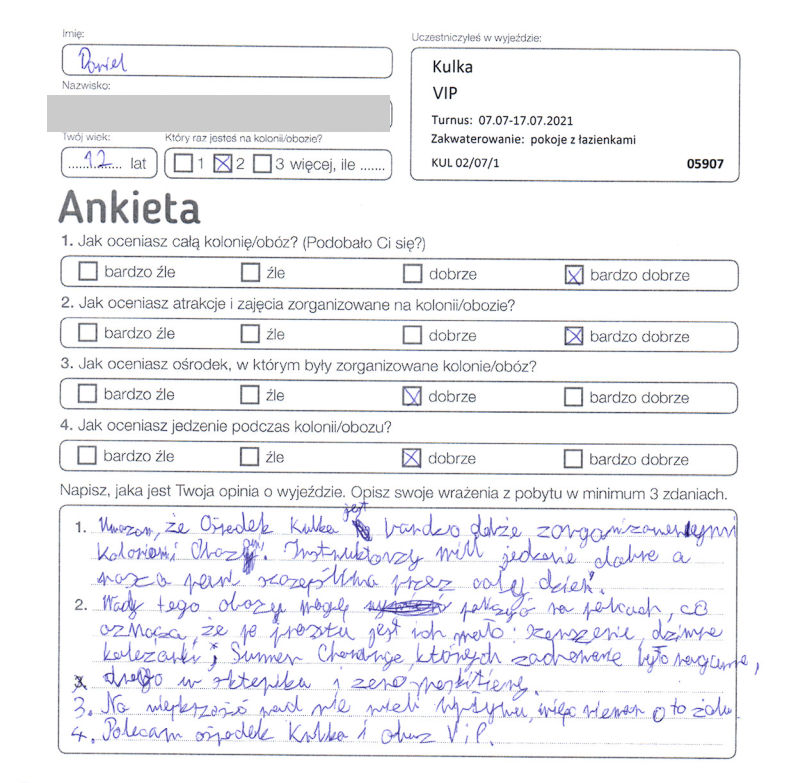 Imię:
Uczestniczyłeś w wyjeździe:
Daniel
Kulka
VIP
Nazwisko:
Turnus: 07.07-17.07.2021
Zakwaterowanie: pokoje z łazienkami
KUL 02/07/1 05907
Twój wiek: Który raz jesteś na kolonii/obozie?
12 lat 1 2 3 więcej, ile .......
Ankieta
1. Jak oceniasz całą kolonię/obóz? (Podobało Ci się?)
bardzo źle źle dobrze bardzo dobrze
2. Jak oceniasz atrakcje i zajęcia zorganizowane na kolonii/obozie?
bardzo źle źle dobrze bardzo dobrze
3. Jak oceniasz ośrodek, w którym były zorganizowane kolonie/obóz?
bardzo źle źle dobrze bardzo dobrze
4. Jak oceniasz jedzenie podczas kolonii/obozu?
bardzo źle źle dobrze bardzo dobrze
Napisz, jaka jest Twoja opinia o wyjeździe. Opisz swoje wrażenia z pobytu w minimum 3 zdaniach.
1. Uważam, że Ośrodek Kulka jest bardzo dobże
koloniami Instruktorzy mili jedzenie dobre a
nasza pani przez cały dzień.
2. Wady tego obozu mogę na palcach, co
oznacza, że po prostu jest ich mało:
koleżanki; Summer których zachowanie było naganne,
drogo w sklepiku i zero
3. Na większość wad nie mieli wpływu, więc niemam o to żalu.
4. Polecam ośrodek Kulka i obuz ViP.